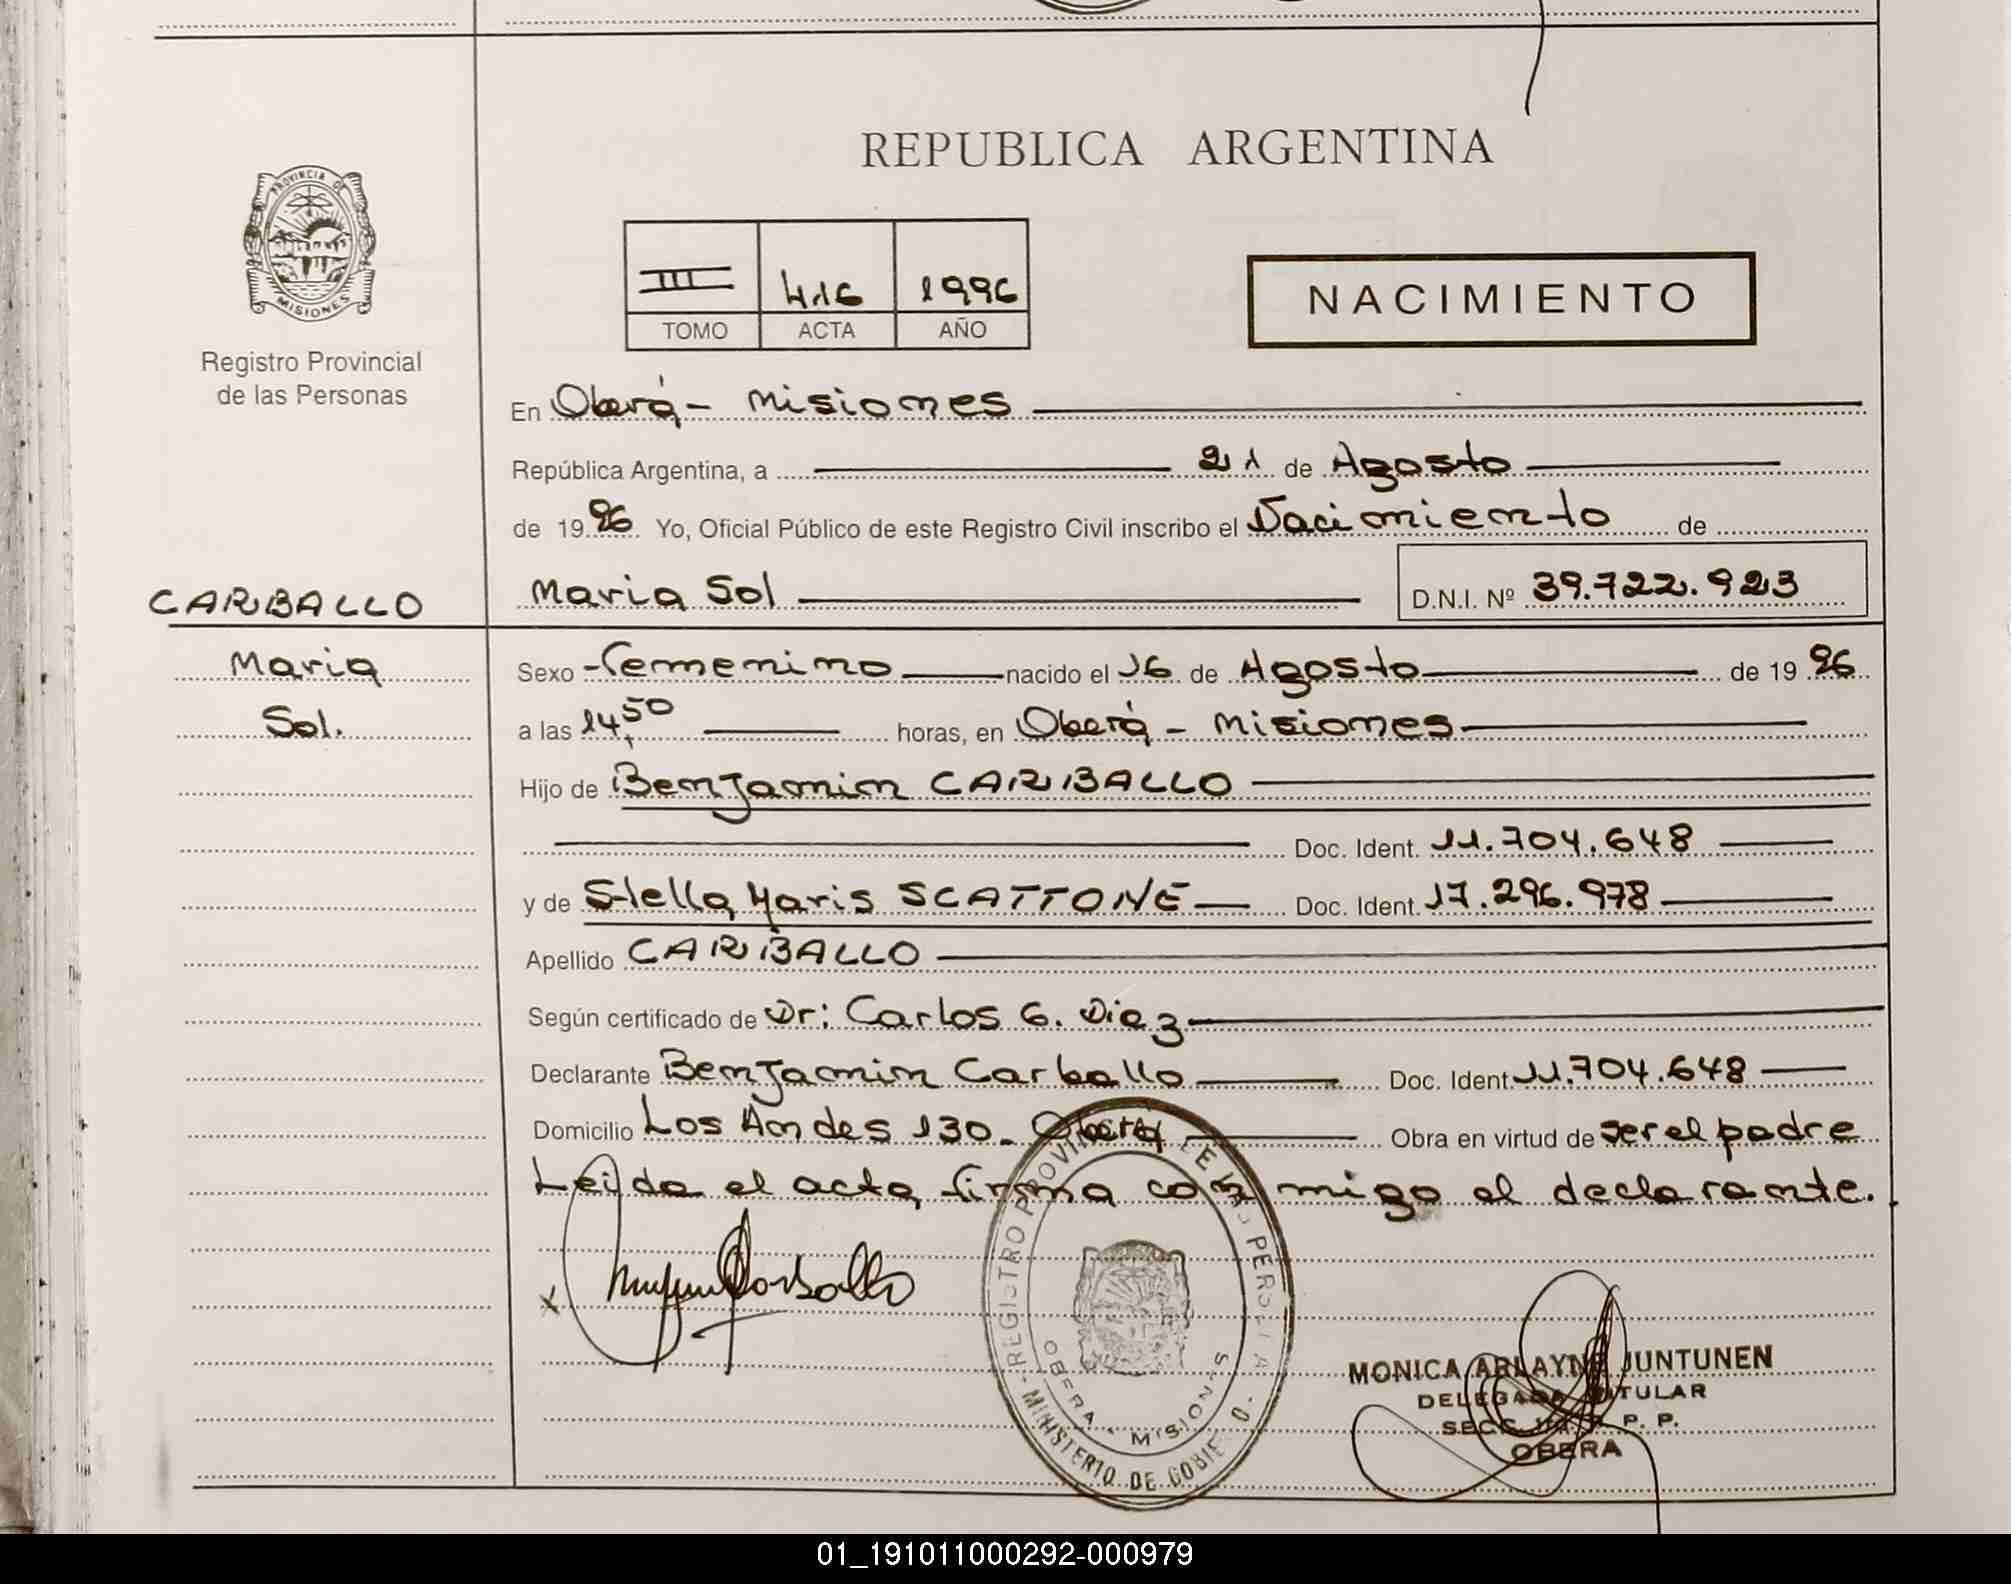 REPUBLICA ARGENTINA
PROVINCIA DE
MISIONES
Registro Provincial
de las Personas
III 416 1996
TOMO ACTA AÑO
NACIMIENTO
En Oberá - Misiones
República Argentina, a 21 de Agosto
de 1996 Yo, Oficial Público de este Registro Civil inscribo el Nacimiento de
CARBALLO
Maria Sol
D.N.I. Nº 39.722.923
Maria
Sol.
Sexo femenino nacido el 16 de Agosto de 1996
a las 14,50 horas, en Oberá - Misiones
Hijo de Benjamin CARBALLO
Doc. Ident. 11.704.648
y de Stella Maris SCATTONE Doc. Ident. 17.296.978
Apellido CARBALLO
Según certificado de Dr: Carlos G. Diez
Declarante Benjamin Carballo Doc. Ident 11.704.648
Domicilio Los Andes 130. Oberá Obra en virtud de ser el padre
Leida el acta firma conmigo el declarante.
x
REGISTRO PROVINCIAL DE LAS PERSONAS
OBERA - MISIONES
- MINISTERIO DE GOBIERNO -
MONICA ARLAYNE JUNTUNEN
DELEGADA TITULAR
OBERA
01_191011000292-000979